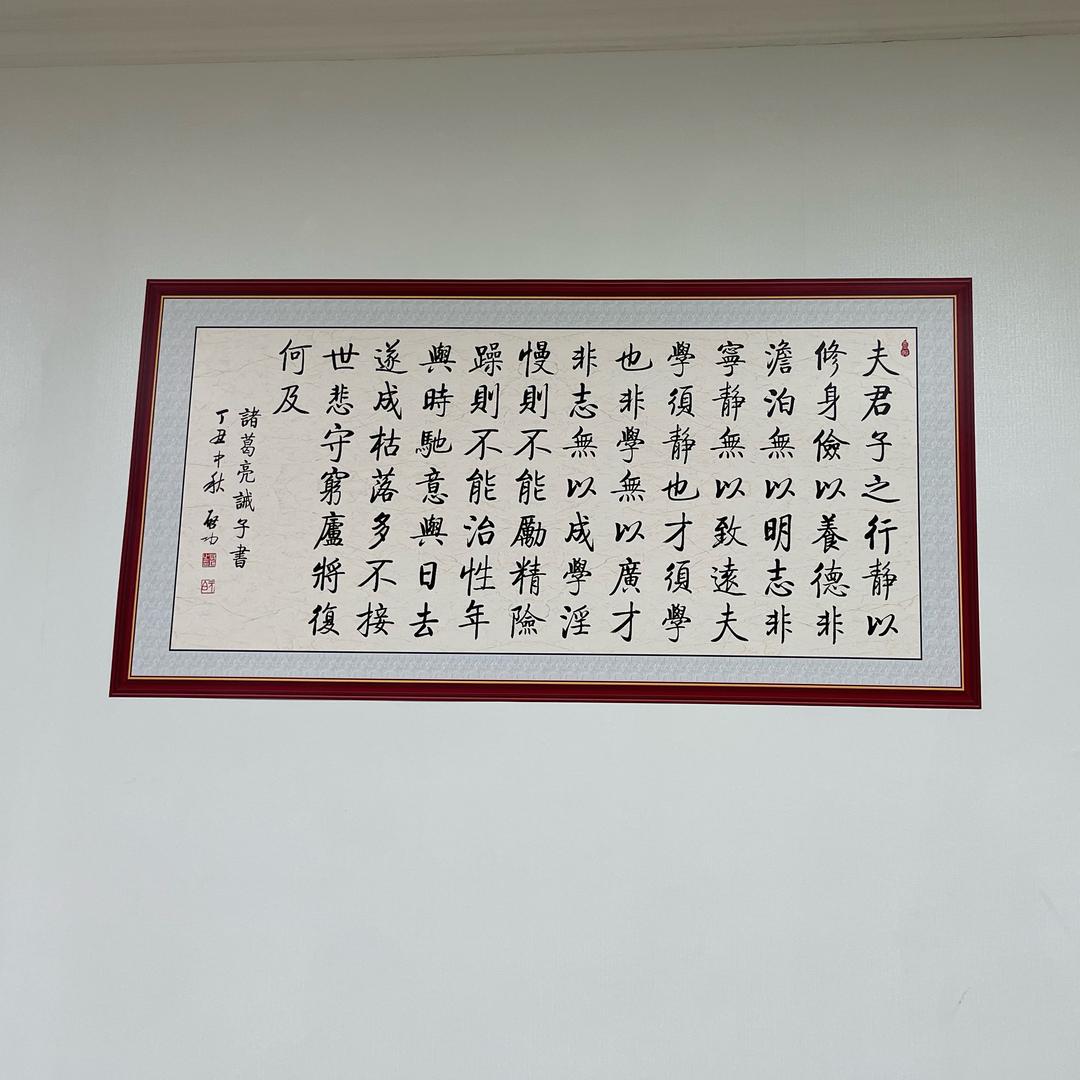 夫君子之行静以
修身儉以養德非
澹泊無以明志非
寧静無以致遠夫
學須静也才須學
也非學無以廣才
非志無以成學淫
慢則不能勵精險
躁則不能治性年
與時馳意與日去
遂成枯落多不接
世悲守窮廬將復
何及
諸葛亮誡子書
丁丑中秋 啟功